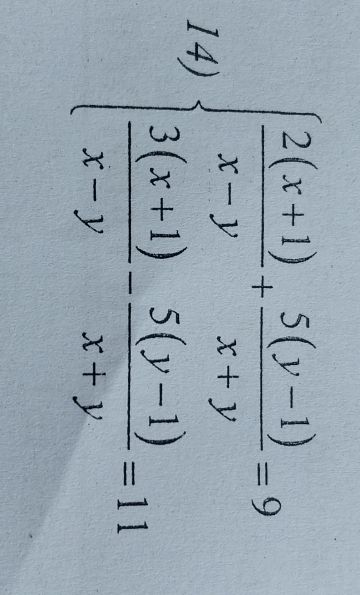 14) { 2(x+1)/(x−y) + 5(y−1)/(x+y) = 9
3(x+1)/(x−y) − 5(y−1)/(x+y) = 11